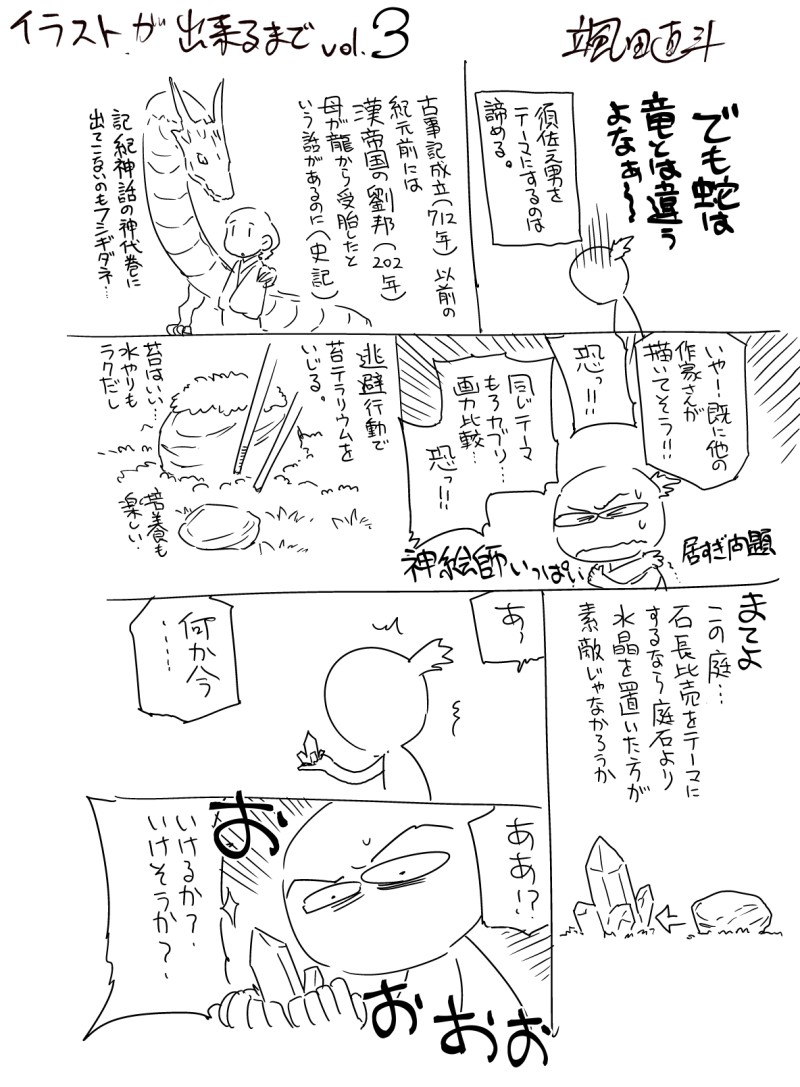 イラストが出来るまで vol.3
颯田直斗
でも蛇は
竜とは違う
よなぁ〜
須佐之男を
テーマにするのは
諦める。
古事記成立(712年)以前の
紀元前には
漢帝国の劉邦(202年)
母が龍から受胎したと
いう話があるのに(史記)
記紀神話の神代巻に
出てこないのもフシギダネ…
いやー既に他の
作家さんが
描いてそう!!
恐っ!!
同じテーマ
もろカブリ…
画力比較…
恐っ!!
神絵師いっぱい
居すぎ問題
逃避行動で
苔テラリウムを
いじる。
苔はいい…
水やりも
ラクだし
培養も
楽しい…
まてよ
この庭…
石長比売をテーマに
するなら庭石より
水晶を置いた方が
素敵じゃなかろうか
あ〜
何か今
……
ああ!?
おおおお
いけるか?
いけそうか?